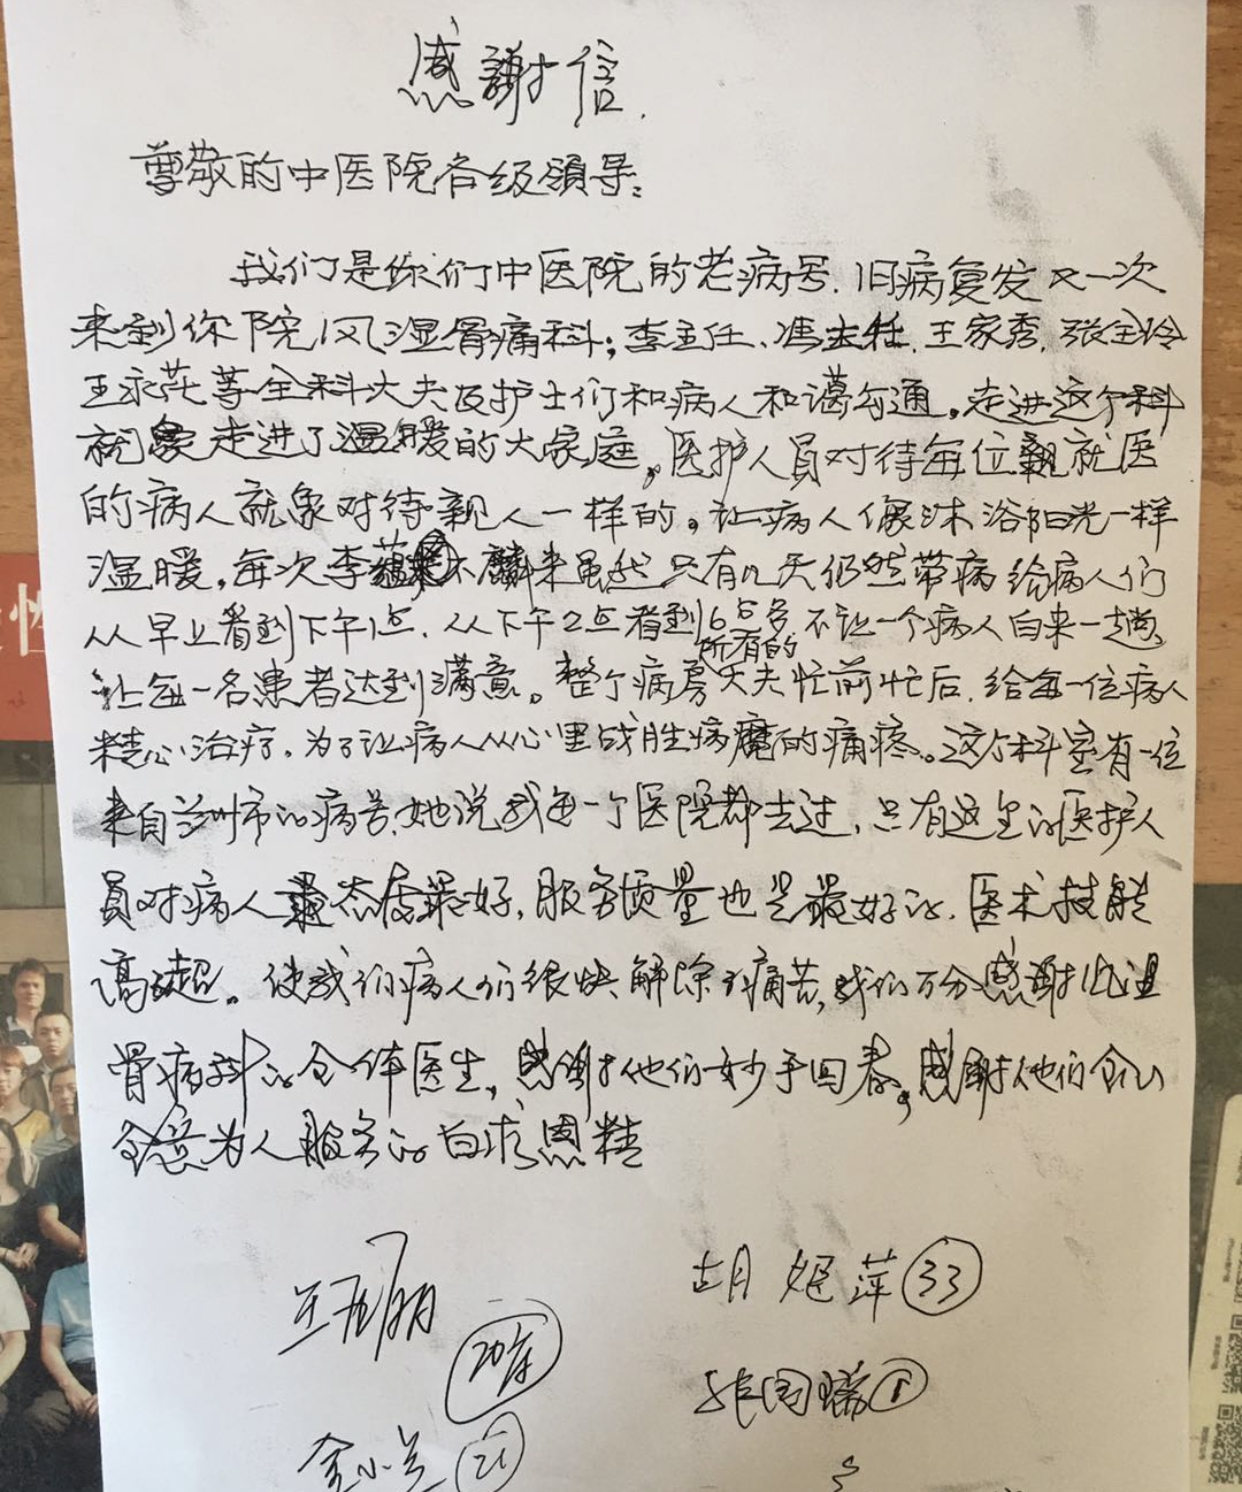 感謝信.
尊敬的中医院各级領导:
我们是你们中医院的老病号.旧病复发又一次
来到你院风湿骨痛科;李主任、冯主任.王家秀.张全玲
王永茂等全科大夫及护士们和病人和谒勾通。走进这个科
就象走进了温暖的大家庭。医护人员对待每位就医
的病人就象对待亲人一样的。让病人像沐浴阳光一样
温暖。每次李来虽然只有几天仍然带病给病人们
从早上看到下午1点.从下午2点看到6点多不让一个病人白来一趟。
让每一名患者达到满意。整个病房所有的大夫忙前忙后.给每一位病人
精心治疗.为了让病人从心里战胜病魔的痛疼。这个科室有一位
来自兰州市的病苦.她说我每一个医院都去过.只有这里的医护人
员对病人态度最好.服务质量也是最好的.医术技能
高超。使我们病人们很快解除了痛苦,我们万分感谢风湿
骨病科的全体医生.感谢他们妙手回春。感谢他们全心
全意为人服务的白求恩精
胡姬萍 33
20床
张国瑞
金小兰 21